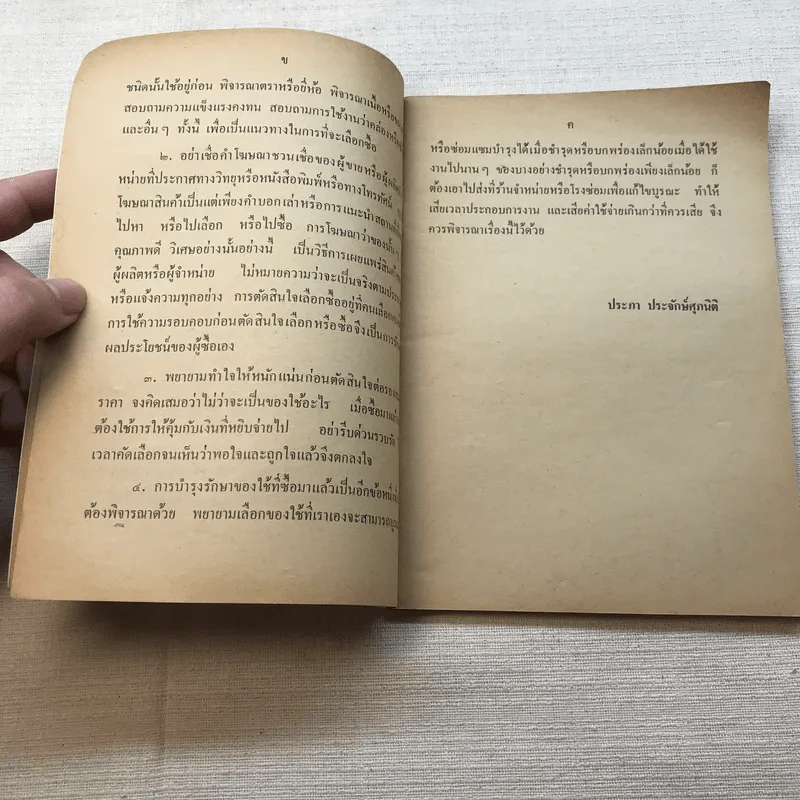 ข
ชนิดนั้นใช้อยู่ก่อน พิจารณาตราหรือยี่ห้อ พิจารณาเนื้อหรือ
สอบถามความแข็งแรงคงทน สอบถามการใช้งานว่าคล่องหรือ
และอื่นๆ ทั้งนี้ เพื่อเป็นแนวทางในการที่จะเลือกซื้อ
๒. อย่าเชื่อคำโฆษณาชวนเชื่อของผู้ขายหรือผู้ผลิต
หน่ายที่ประกาศทางวิทยุหรือหนังสือพิมพ์หรือทางโทรทัศน์
โฆษณาสินค้าเป็นแต่เพียงคำบอกเล่าหรือการแนะนำสถานที่
ไปหา หรือไปเลือก หรือไปซื้อ การโฆษณาว่าของนั้นๆ
คุณภาพดี วิเศษอย่างนั้นอย่างนี้ เป็นวิธีการเผยแพร่สินค้า
ผู้ผลิตหรือผู้จำหน่าย ไม่หมายความว่าจะเป็นจริงตาม
หรือแจ้งความทุกอย่าง การตัดสินใจเลือกซื้ออยู่ที่คนเลือก
การใช้ความรอบคอบก่อนตัดสินใจเลือกหรือซื้อจึงเป็นการ
ผลประโยชน์ของผู้ซื้อเอง
๓. พยายามทำใจให้หนักแน่นก่อนตัดสินใจต่อรอง
ราคา จงคิดเสมอว่าไม่ว่าจะเป็นของใช้อะไร เมื่อซื้อมาแล้ว
ต้องใช้การให้คุ้มกับเงินที่หยิบจ่ายไป อย่ารีบด่วนรวบรัด
เวลาคัดเลือกจนเห็นว่าพอใจและถูกใจแล้วจึงตกลงใจ
๔. การบำรุงรักษาของใช้ที่ซื้อมาแล้วเป็นอีกข้อหนึ่ง
ต้องพิจารณาด้วย พยายามเลือกของใช้ที่เราเองจะสามารถ
ค
หรือซ่อมแซมบำรุงได้เมื่อชำรุดหรือบกพร่องเล็กน้อยเมื่อได้ใช้
งานไปนานๆ ของบางอย่างชำรุดหรือบกพร่องเพียงเล็กน้อย ก็
ต้องเอาไปส่งที่ร้านจำหน่ายหรือโรงซ่อมเพื่อแก้ไขบูรณะ ทำให้
เสียเวลาประกอบการงาน และเสียค่าใช้จ่ายเกินกว่าที่ควรเสีย จึง
ควรพิจารณาเรื่องนี้ไว้ด้วย
ประภา ประจักษ์ศุภนิติ